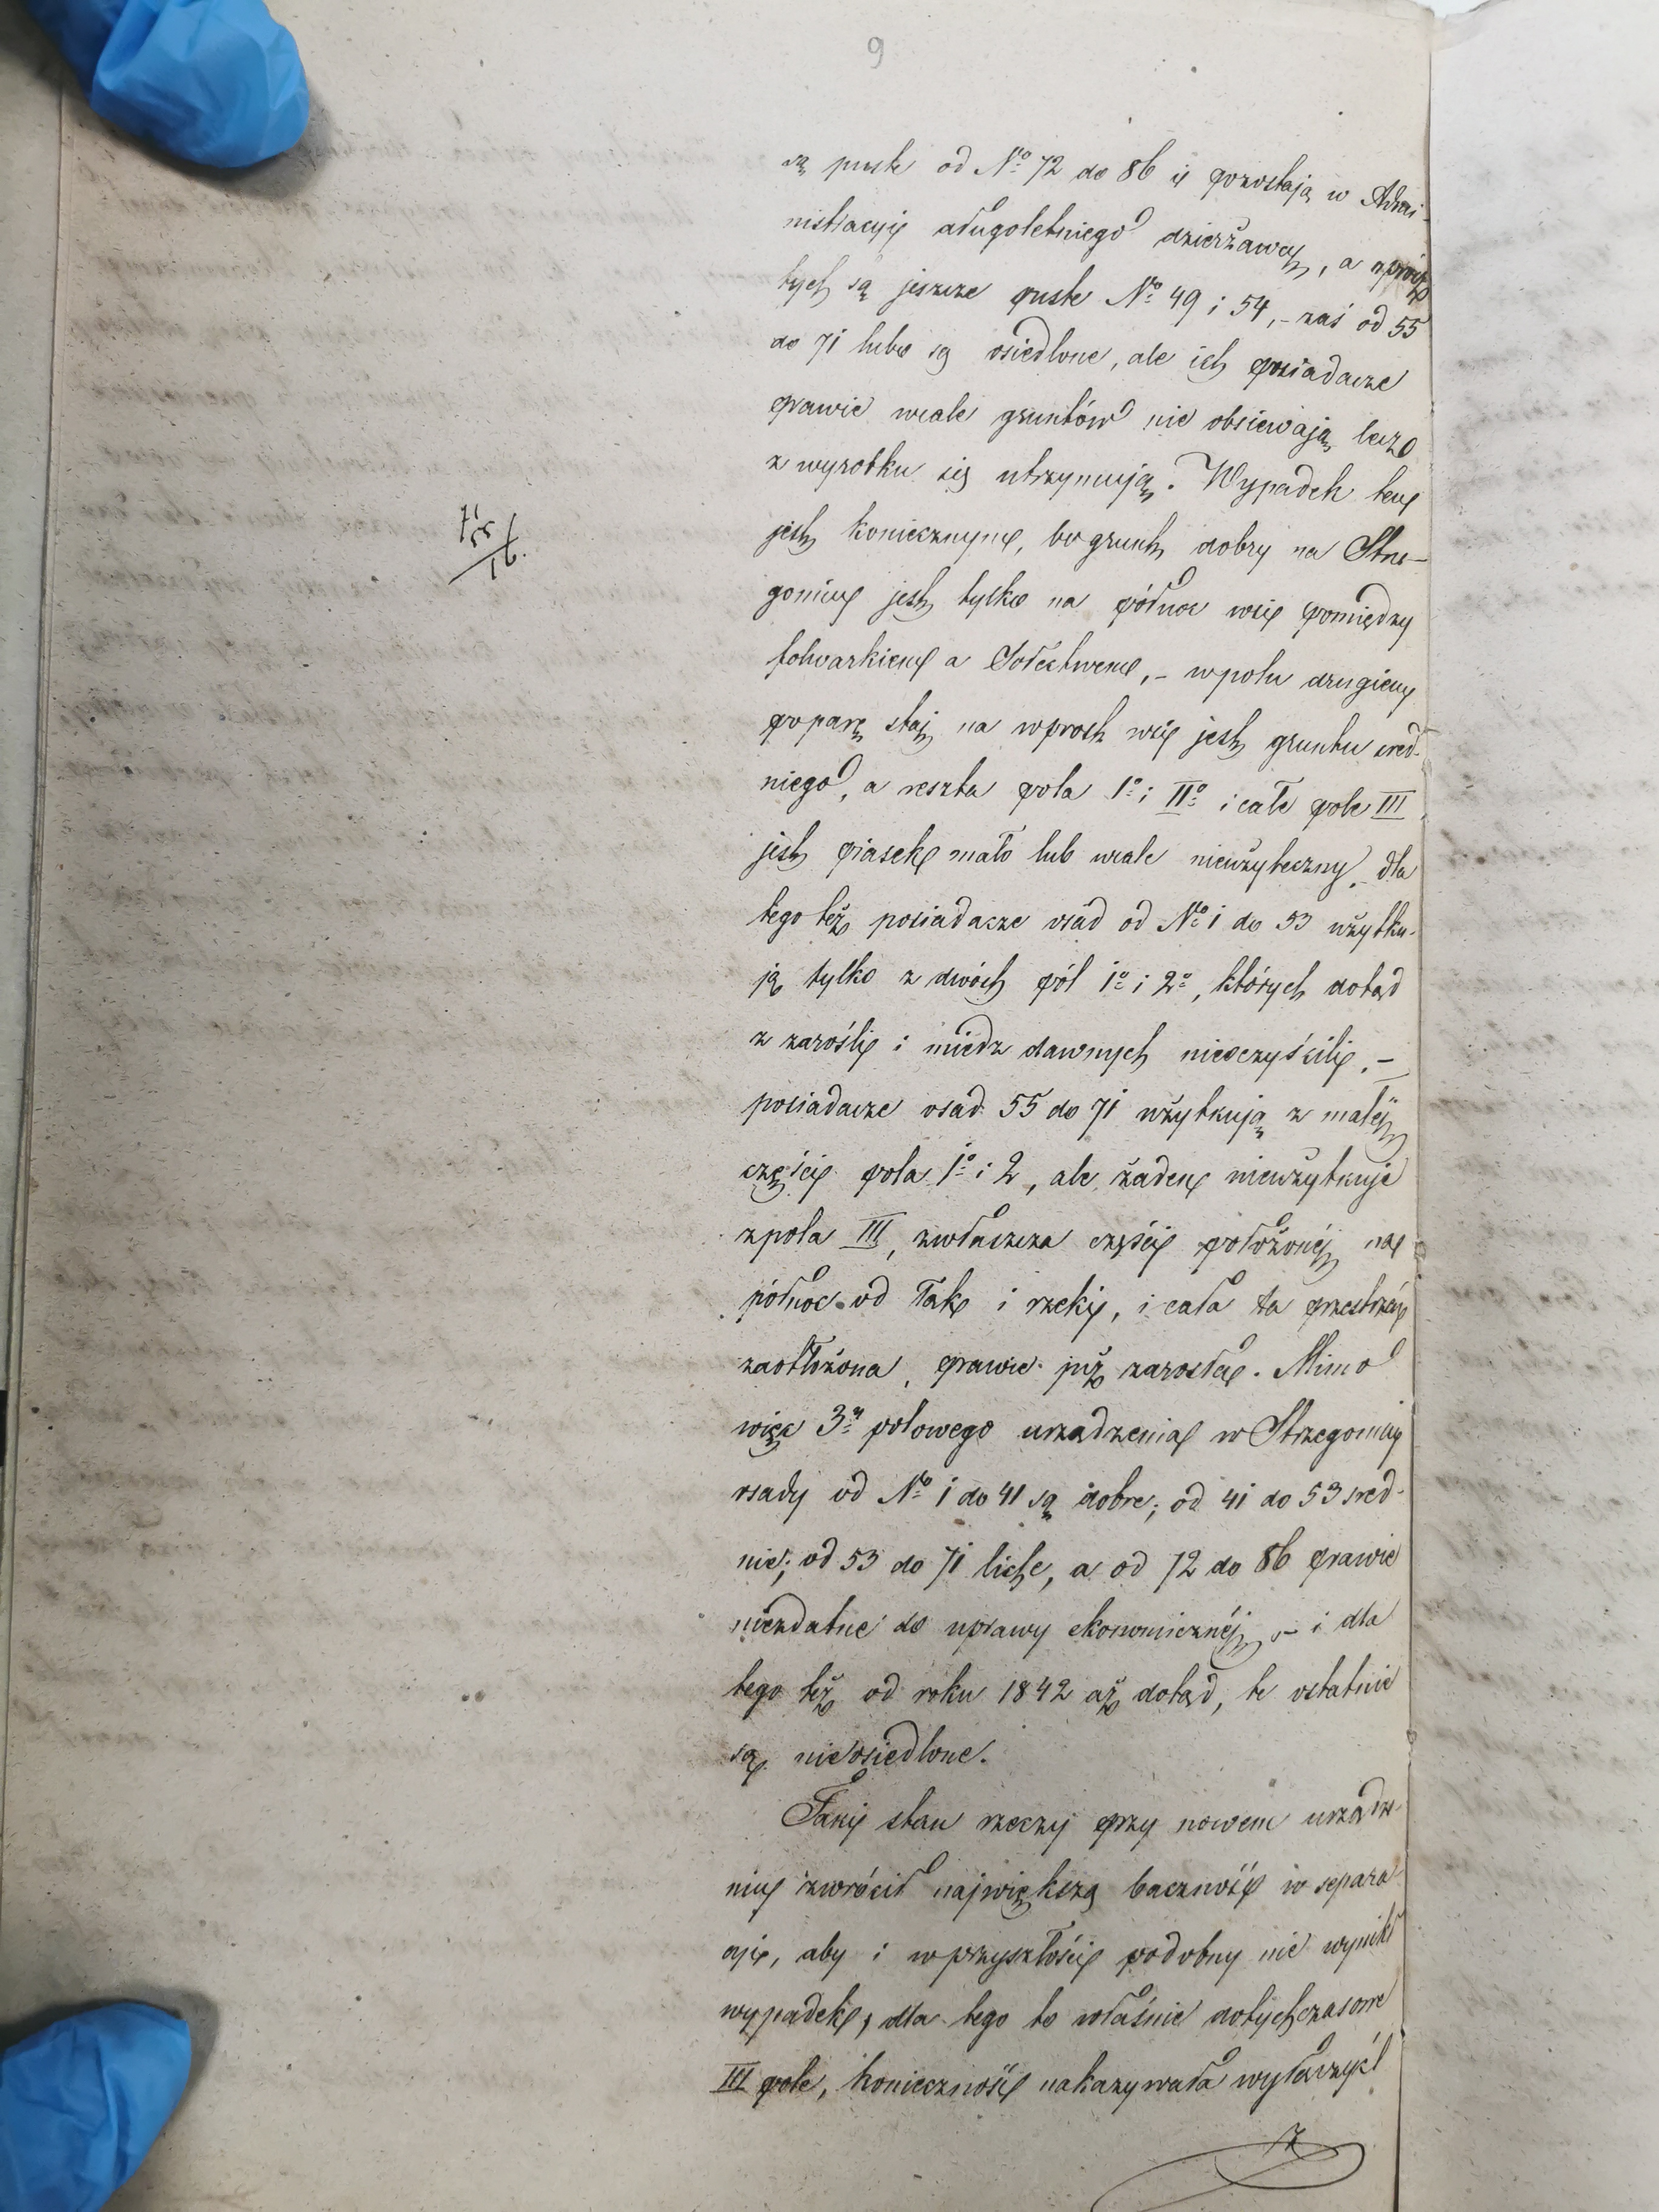 9
są puste od No 72 do 86 i pozostają w Admi-
nistracyi długoletniego dzierżawcy, a oprócz
tych są jeszcze puste No 49 i 54, - zaś od 55
do 71 lubo są osiedlone, ale ich posiadacze
prawie wcale gruntów nie obsiewają lecz
z wyrobku się utrzymują. Wypadek ten
jest koniecznym, bo grunt dobry na Strze-
gomiu jest tylko na północ wsi pomiędzy
folwarkiem a Sołectwem, - w polu drugiem
po parę staj na wprost wsi jest gruntu śred-
niego, a reszta pola 1o i IIo i całe pole III
jest piasek mało lub wcale nieużyteczny, dla
tego też posiadacze osad od No 1 do 53 użytku-
ją tylko z dwóch pól 1o i 2o, których dotąd
z zarośli i miedz dawnych nieoczyścili, -
posiadacze osad 55 do 71 użytkują z małéj
części pola 1o i 2, ale żaden nieużytkuje
z pola III, zwłaszcza części położonéj na
północ od łąk i rzeki, i cała ta przestrzeń
zaodłożona, prawie już zarosła. Mimo
więc 3y polowego urządzenia w Strzegomiu
osady od No 1 do 41 są dobre; od 41 do 53 śred-
nie; od 53 do 71 liche, a od 72 do 86 prawie
niezdatne do uprawy ekonomicznéj, - i dla
tego też od roku 1842 aż dotąd, te ostatnie
są nieosiedlone.
Taki stan rzeczy przy nowem urządze-
niu zwrócił największą baczność w separa-
cyi, aby i w przyszłości podobny nie wynikł
wypadek, dla tego to właśnie dotychczasowe
III pole, konieczność nakazywała wyłączyć